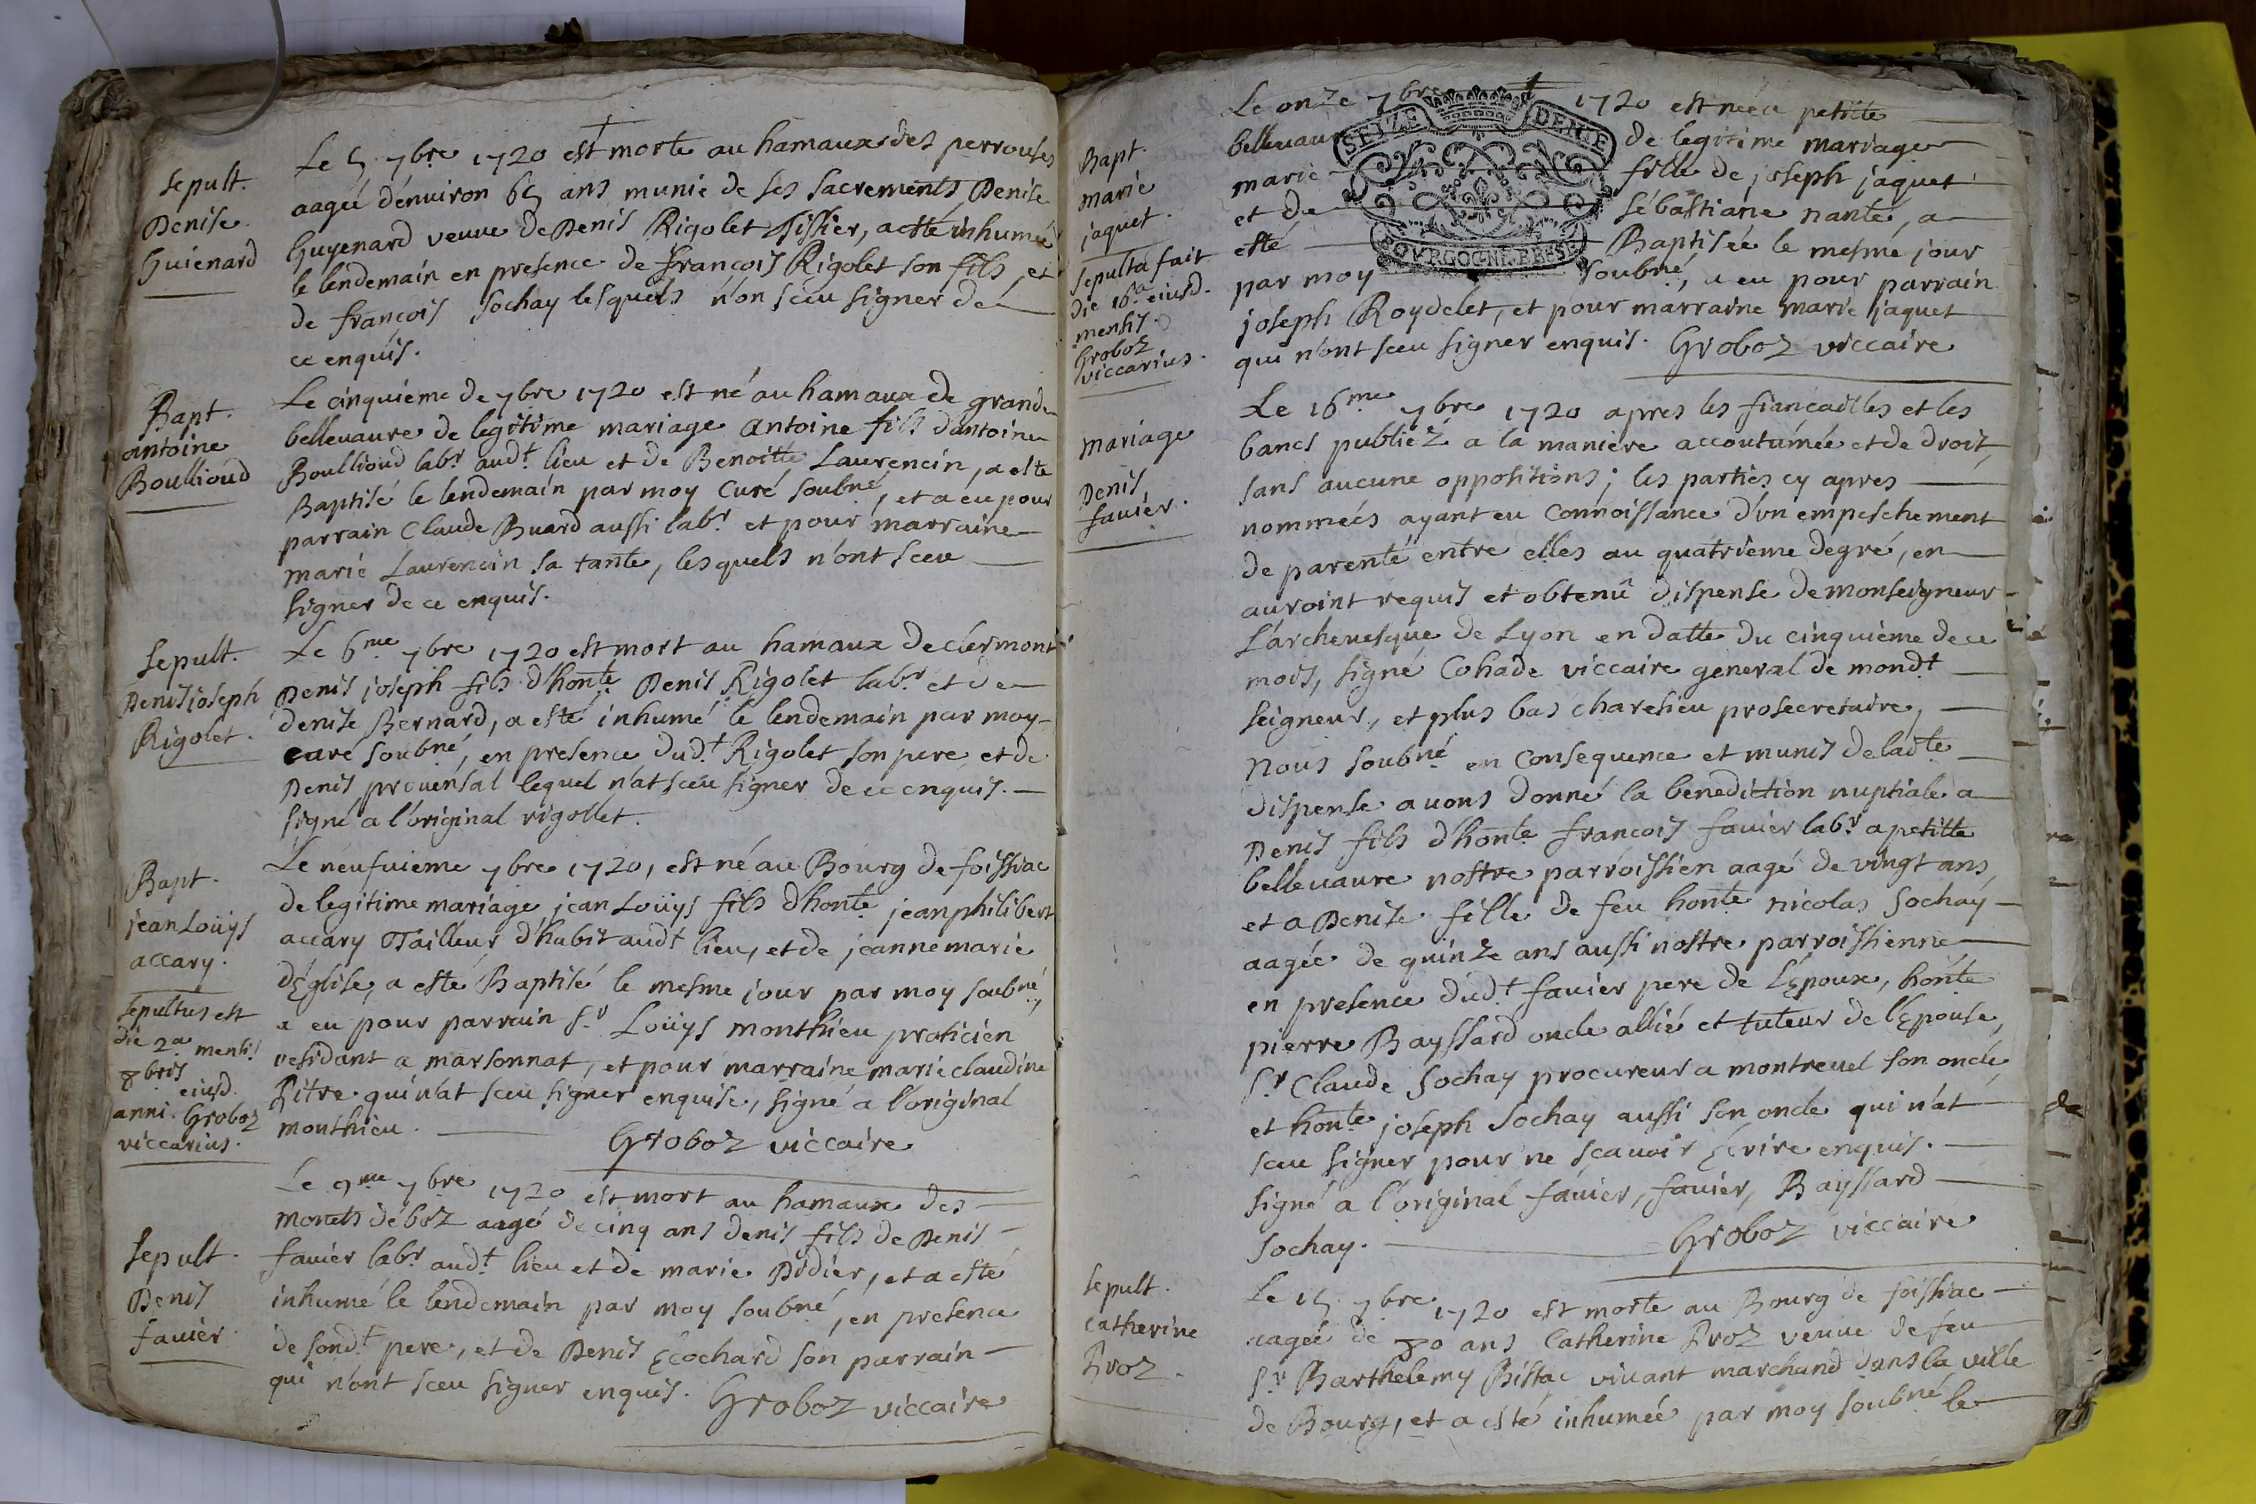 Sepult.
Denise
Guienard
Le 5 7bre 1720 est morte au hamaux des perrouses
aageé d'environ 65 ans munie de ses sacrements, Denise
Guyenard veuve de Denis Rigolet Tissier, a esté inhumeé
le lendemain en presence de françois Rigolet son fils, et
de françois Sochay lesquels n'on sceu signer de
ce enquis.
Bapt.
antoine
Boullioud
Le cinquiéme de 7bre 1720 est né au hamaux de grande
bellevavre de legitime mariage antoine fils d'antoine
Boullioud labr. audt. lieu et de Benoitte Laurencin, a esté
Baptisé le lendemain par moy Curé soubné, et a eu pour
parrain Claude Buard aussi labr. et pour marraine
marie Laurencin sa tante, lesquels n'ont sceu
signer de ce enquis.
Sepult.
Denis joseph
Rigolet.
Le 6me 7bre 1720 est mort au hamaux de clermont
Denis joseph fils d'honte. Denis Rigolet labr. et de
denise Bernard, a esté inhumé le lendemain par moy
curé soubné, en presence dudt. Rigolet son pere et de
Denis provensal lequel n'at sceu signer de ce enquis.
signé a l'original rigollet.
Bapt.
jean Loüys
accary.
Le neufuieme 7bre 1720, est né au Bourg de foissiac
de legitime mariage jean Loüys fils d'honte jean philibert
accary Tailleur d'habit audt lieu, et de jeanne marie
d'Eglise, a esté Baptisé le mesme jour par moy soubné,
a eu pour parrain Sr. Loüys monthieu praticien
residant a marsonnat, et pour marraine marie claudine
Pitre qui n'at sceu signer enquise, signé a l'original
monthieu.
Groboz viccaire
sepultus est
die 2a mensis
8bris
eiusd.
anni. Groboz
viccarius.
Sepult.
Denis
favier
Le 9me 7bre 1720 est mort au hamaux des
monets déboz aagé de cinq ans denis fils de Denis
favier labr. audt. lieu et de marie Didier, et a esté
inhumé le lendemain par moy soubné, en presence
de sondt. pere, et de Denis Ecochard son parrain
qui n'ont sceu signer enquis. Groboz viccaire
Bapt.
marie
jaquet.
Sepulta fuit
die 16a eiusd.
mensis.
Groboz
viccarius.
Le onze 7bre 1720 est neéa petitte
bellevavre de legitime mariage
marie fille de joseph jaquet
et de sébastiane nante, a
esté Baptisée le mesme jour
par moy soubné, a eu pour parrain
joseph Roydelet, et pour marraine marie jaquet
qui n'ont sceu signer enquis. Groboz viccaire
SEIZE DENIE
BOVRGOGNE BRESSE
mariage
Denis
favier.
Le 16me 7bre 1720 apres les fiançailles et les
bancs publiéz a la maniere accoutumée et de droit,
sans aucune oppositions; les parties cy apres
nommées ayant eu Connoissance d'un empeschement
de parenté entre elles au quatrieme degré, en
auroint requis et obtenû dispense de monseigneur
L'archevesque de Lyon en datte du cinquieme de ce
mois, signé Cohade viccaire general de mondt.
seigneur, et plus bas charesieu prosecretaire,
Nous soubné en Consequence et munis de ladte
dispense avons donné la benediction nuptiale a
Denis fils d'honte françois favier labr. a petitte
bellevavre nostre parroissien aagé de vingt ans,
et a Denise fille de feu honte nicolas Sochay
aageé de quinze ans aussi nostre parroissienne
en presence dudt. favier pere de L'Epoux, honte
pierre Bayssard oncle allié et tuteur de l'Epouse,
Sr. Claude Sochay procureur a montrevel son oncle,
et honte joseph Sochay aussi son oncle qui n'at
sceu signer pour ne sçavoir Ecrire enquis.
signé a l'original favier, favier, Bayssard
Sochay.
Groboz viccaire
Sepult.
catherine
Proz.
Le 15 7bre 1720 est morte au Bourg de foissiac
aageé de 80 ans Catherine Proz veuve de feu
Sr. Barthelemy Pistac vivant marchand dans la ville
de Bourg, et a esté inhumeé par moy soubné le